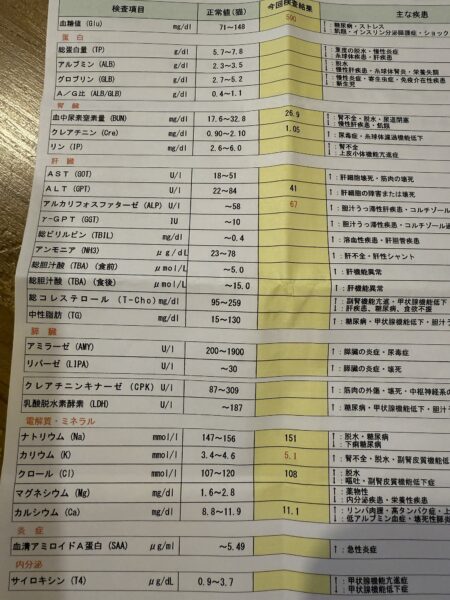 検査項目 正常値(猫) 今回検査結果 主な疾患
血糖値 (Glu) mg/dl 71〜148 590 ↑：糖尿病・ストレス
↓：飢餓・インスリン分泌膵臓症・ショック
蛋白
総蛋白量 (TP) g/dl 5.7〜7.8 ↑：重度の脱水・慢性炎症
↓：糸球体疾患・肝疾患
アルブミン (ALB) g/dl 2.3〜3.5 ↑：脱水
↓：慢性肝疾患・糸球体腎炎・栄養失調
グロブリン (GLB) g/dl 2.7〜5.2 ↑：慢性炎症・寄生虫症・免疫介在性疾患
↓：新生児
A／G比 (ALB/GLB) 0.4〜1.1
腎臓
血中尿素窒素量 (BUN) mg/dl 17.6〜32.8 26.9 ↑：腎不全・脱水・尿道閉塞
↓：慢性肝疾患・飢餓
クレアチニン (Cre) mg/dl 0.90〜2.10 1.05 ↑：尿毒症・糸球体濾過機能低下
リン (IP) mg/dl 2.6〜6.0 ↑：腎不全
↓：上皮小体機能亢進症
肝臓
AST (GOT) U/l 18〜51 ↑：肝細胞壊死・筋肉の壊死
ALT (GPT) U/l 22〜84 41 ↑：肝細胞の障害または壊死
アルカリフォスファターゼ (ALP) U/l 〜58 67 ↑：胆汁うっ滞性肝疾患・コルチゾール
γ-GPT (GGT) IU 〜10 ↑：胆汁うっ滞性疾患・コルチゾール
総ビリルビン (TBIL) mg/dl 〜0.4 ↑：溶血性疾患・肝胆管疾患
アンモニア (NH3) μg/dL 23〜78 ↑：肝不全・肝性シャント
総胆汁酸 (TBA) (食前) μmol/L 〜5.0 ↑：肝機能異常
総胆汁酸 (TBA) (食後) μmol/L 〜15.0 ↑：肝機能異常
総コレステロール (T-Cho) mg/dl 95〜259 ↑：副腎機能亢進・甲状腺機能低下
↓：肝疾患、糖尿病、食欲不振
中性脂肪 (TG) mg/dl 15〜130 ↑：糖尿病・甲状腺機能低下・胆汁う
膵臓
アミラーゼ (AMY) U/l 200〜1900 ↑：膵臓の炎症・尿毒症
リパーゼ (LIPA) U/l 〜30 ↑：膵臓の炎症・壊死
クレアチニンキナーゼ (CPK) U/l 87〜309 ↑：筋肉の外傷・壊死・中枢神経系の
乳酸脱水素酵素 (LDH) U/l 〜187 ↑：糖尿病・甲状腺機能低下・胆汁
電解質・ミネラル
ナトリウム (Na) mmol/l 147〜156 151 ↑：脱水・糖尿病
↓：下痢糖尿病
カリウム (K) mmol/l 3.4〜4.6 5.1 ↑：腎不全・脱水・副腎皮質機能低
クロール (Cl) mmol/l 107〜120 108 ↑：脱水
↓：嘔吐・副腎皮質機能低下症
マグネシウム (Mg) mg/dl 1.6〜2.8 ↑：薬物性
↓：内分泌疾患・栄養性疾患
カルシウム (Ca) mg/dl 8.8〜11.9 11.1 ↑：リンパ肉腫・高タンパク症・上
↓：低アルブミン血症・壊死性膵炎
炎症
血清アミロイドA蛋白 (SAA) μg/ml 〜5.49 ↑：急性炎症
内分泌
サイロキシン (T4) μg/dL 0.9〜3.7 ↑：甲状腺機能亢進症
↓：甲状腺機能低下症